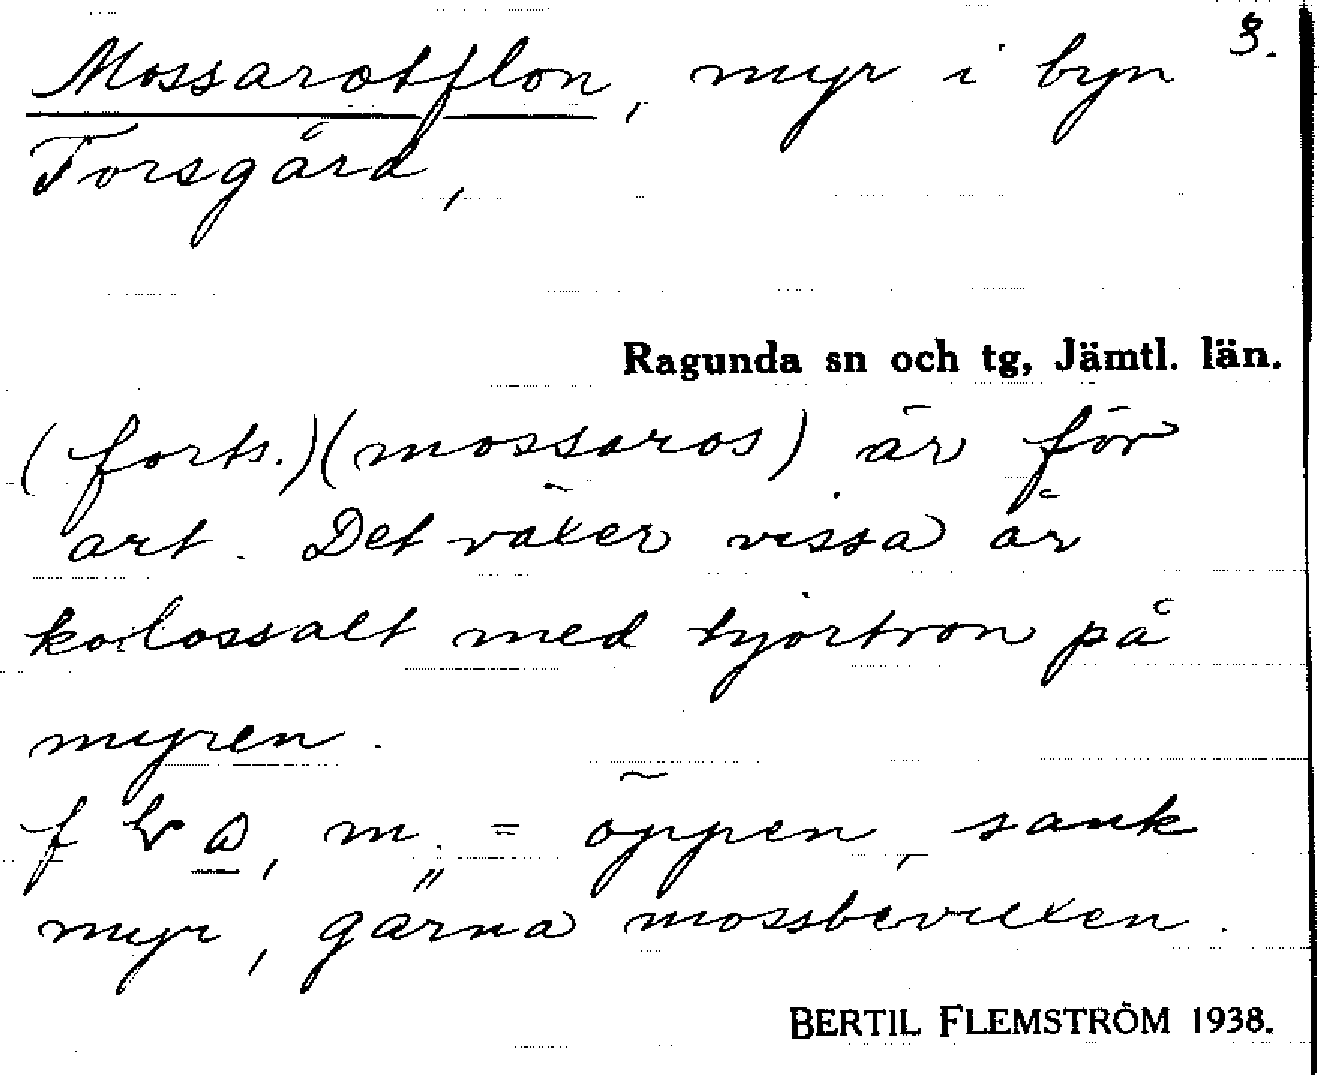 3.
Mossarotflon, myr i byn
Torsgård,
Ragunda sn och tg, Jämtl. län.
(forts.)(mossaros) är för
art. Det växer vissa år
kolossalt med hjortron på
myren.
m. = öppen, sank
myr, gärna mossbevuxen.
BERTIL FLEMSTRÖM 1938.